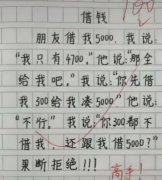 100
借钱
朋友借我5000,我说:
"我只有4700,"他说:"那全
给我吧,"我说:"你先借
我300给我凑5000"他说:
"不行,"我说:"你300都不
借我,还跟我借5000?"
果断拒绝!!!
高手!